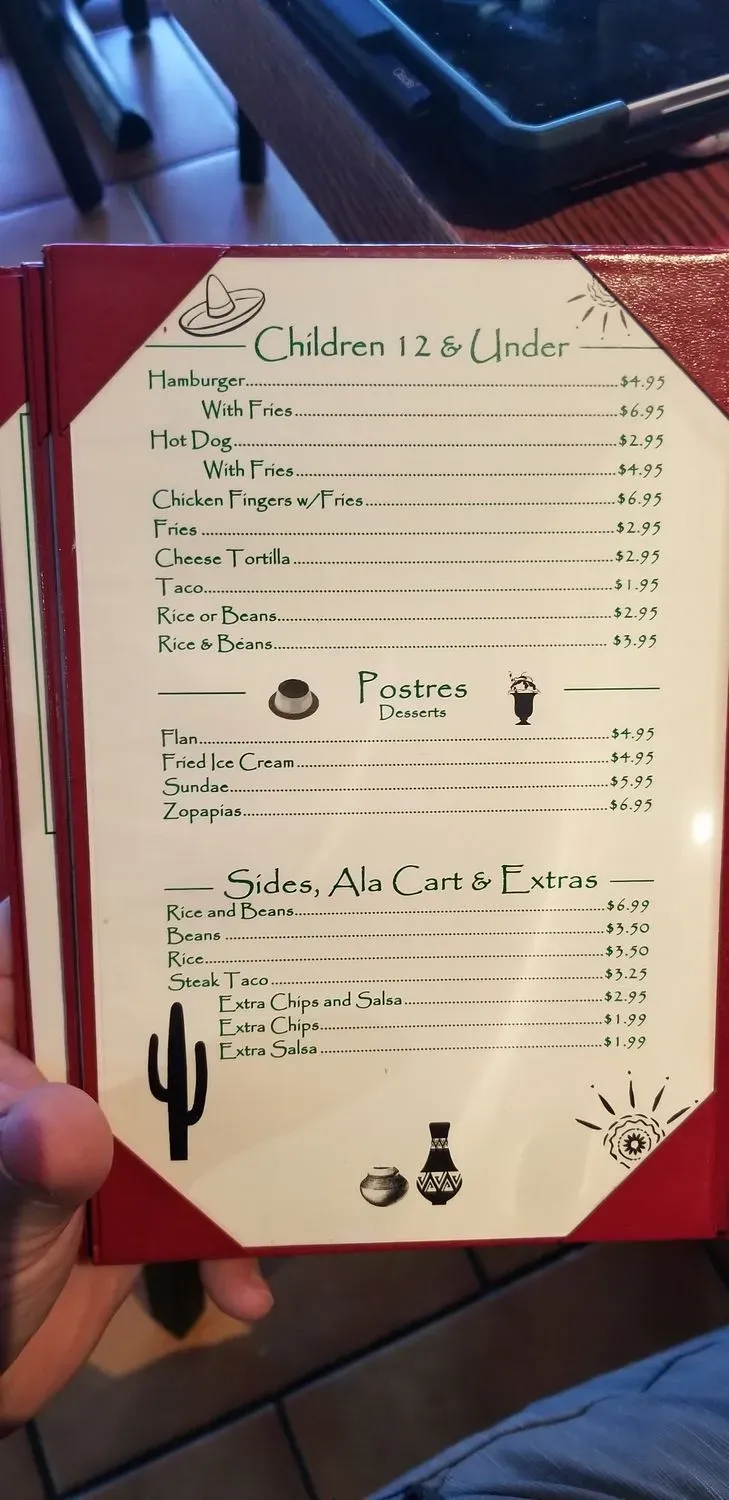 Children 12 & Under
Hamburger..........$4.95
With Fries..........$6.95
Hot Dog..........$2.95
With Fries..........$4.95
Chicken Fingers w/Fries..........$6.95
Fries..........$2.95
Cheese Tortilla..........$2.95
Taco..........$1.95
Rice or Beans..........$2.95
Rice & Beans..........$3.95
Postres
Desserts
Flan..........$4.95
Fried Ice Cream..........$4.95
Sundae..........$5.95
Zopapias..........$6.95
Sides, Ala Cart & Extras
Rice and Beans..........$6.99
Beans..........$3.50
Rice..........$3.50
Steak Taco..........$3.25
Extra Chips and Salsa..........$2.95
Extra Chips..........$1.99
Extra Salsa..........$1.99